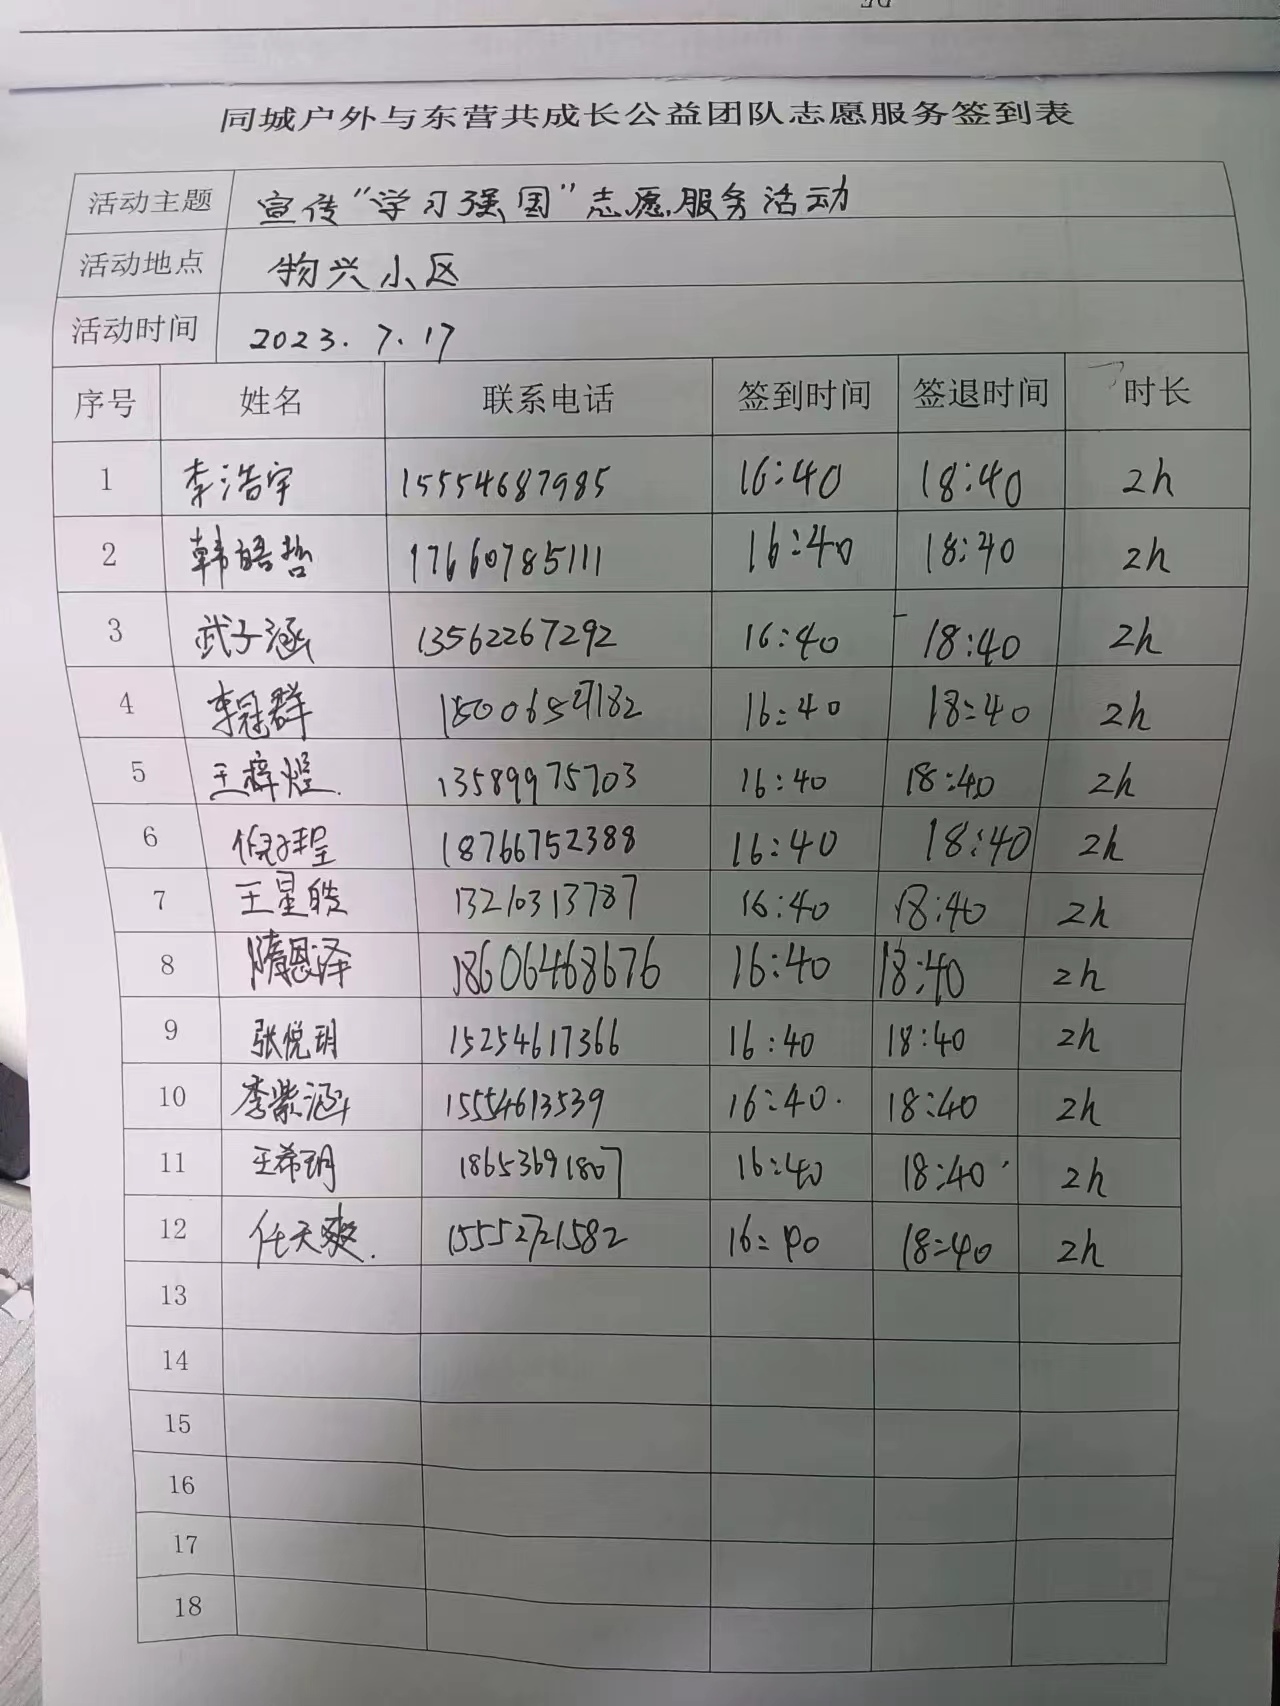 同城户外与东营共成长公益团队志愿服务签到表
活动主题 宣传“学习强国”志愿服务活动
活动地点 物兴小区
活动时间 2023.7.17
序号 姓名 联系电话 签到时间 签退时间 时长
1 李浩宇 15554687985 16:40 18:40 2h
2 韩皓哲 17660785111 16:40 18:40 2h
3 武子涵 13562267292 16:40 18:40 2h
4 李冠群 16:40 18:40 2h
5 王梓煜 13589975703 16:40 18:40 2h
6 18766752388 16:40 18:40 2h
7 王星皓 13210313787 16:40 18:40 2h
8 隋恩泽 18606468676 16:40 18:40 2h
9 张悦玥 15254617366 16:40 18:40 2h
10 李紫涵 15554613539 16:40 18:40 2h
11 王希玥 18653691807 16:40 18:40 2h
12 任天爽 15552721582 16:40 18:40 2h
13
14
15
16
17
18